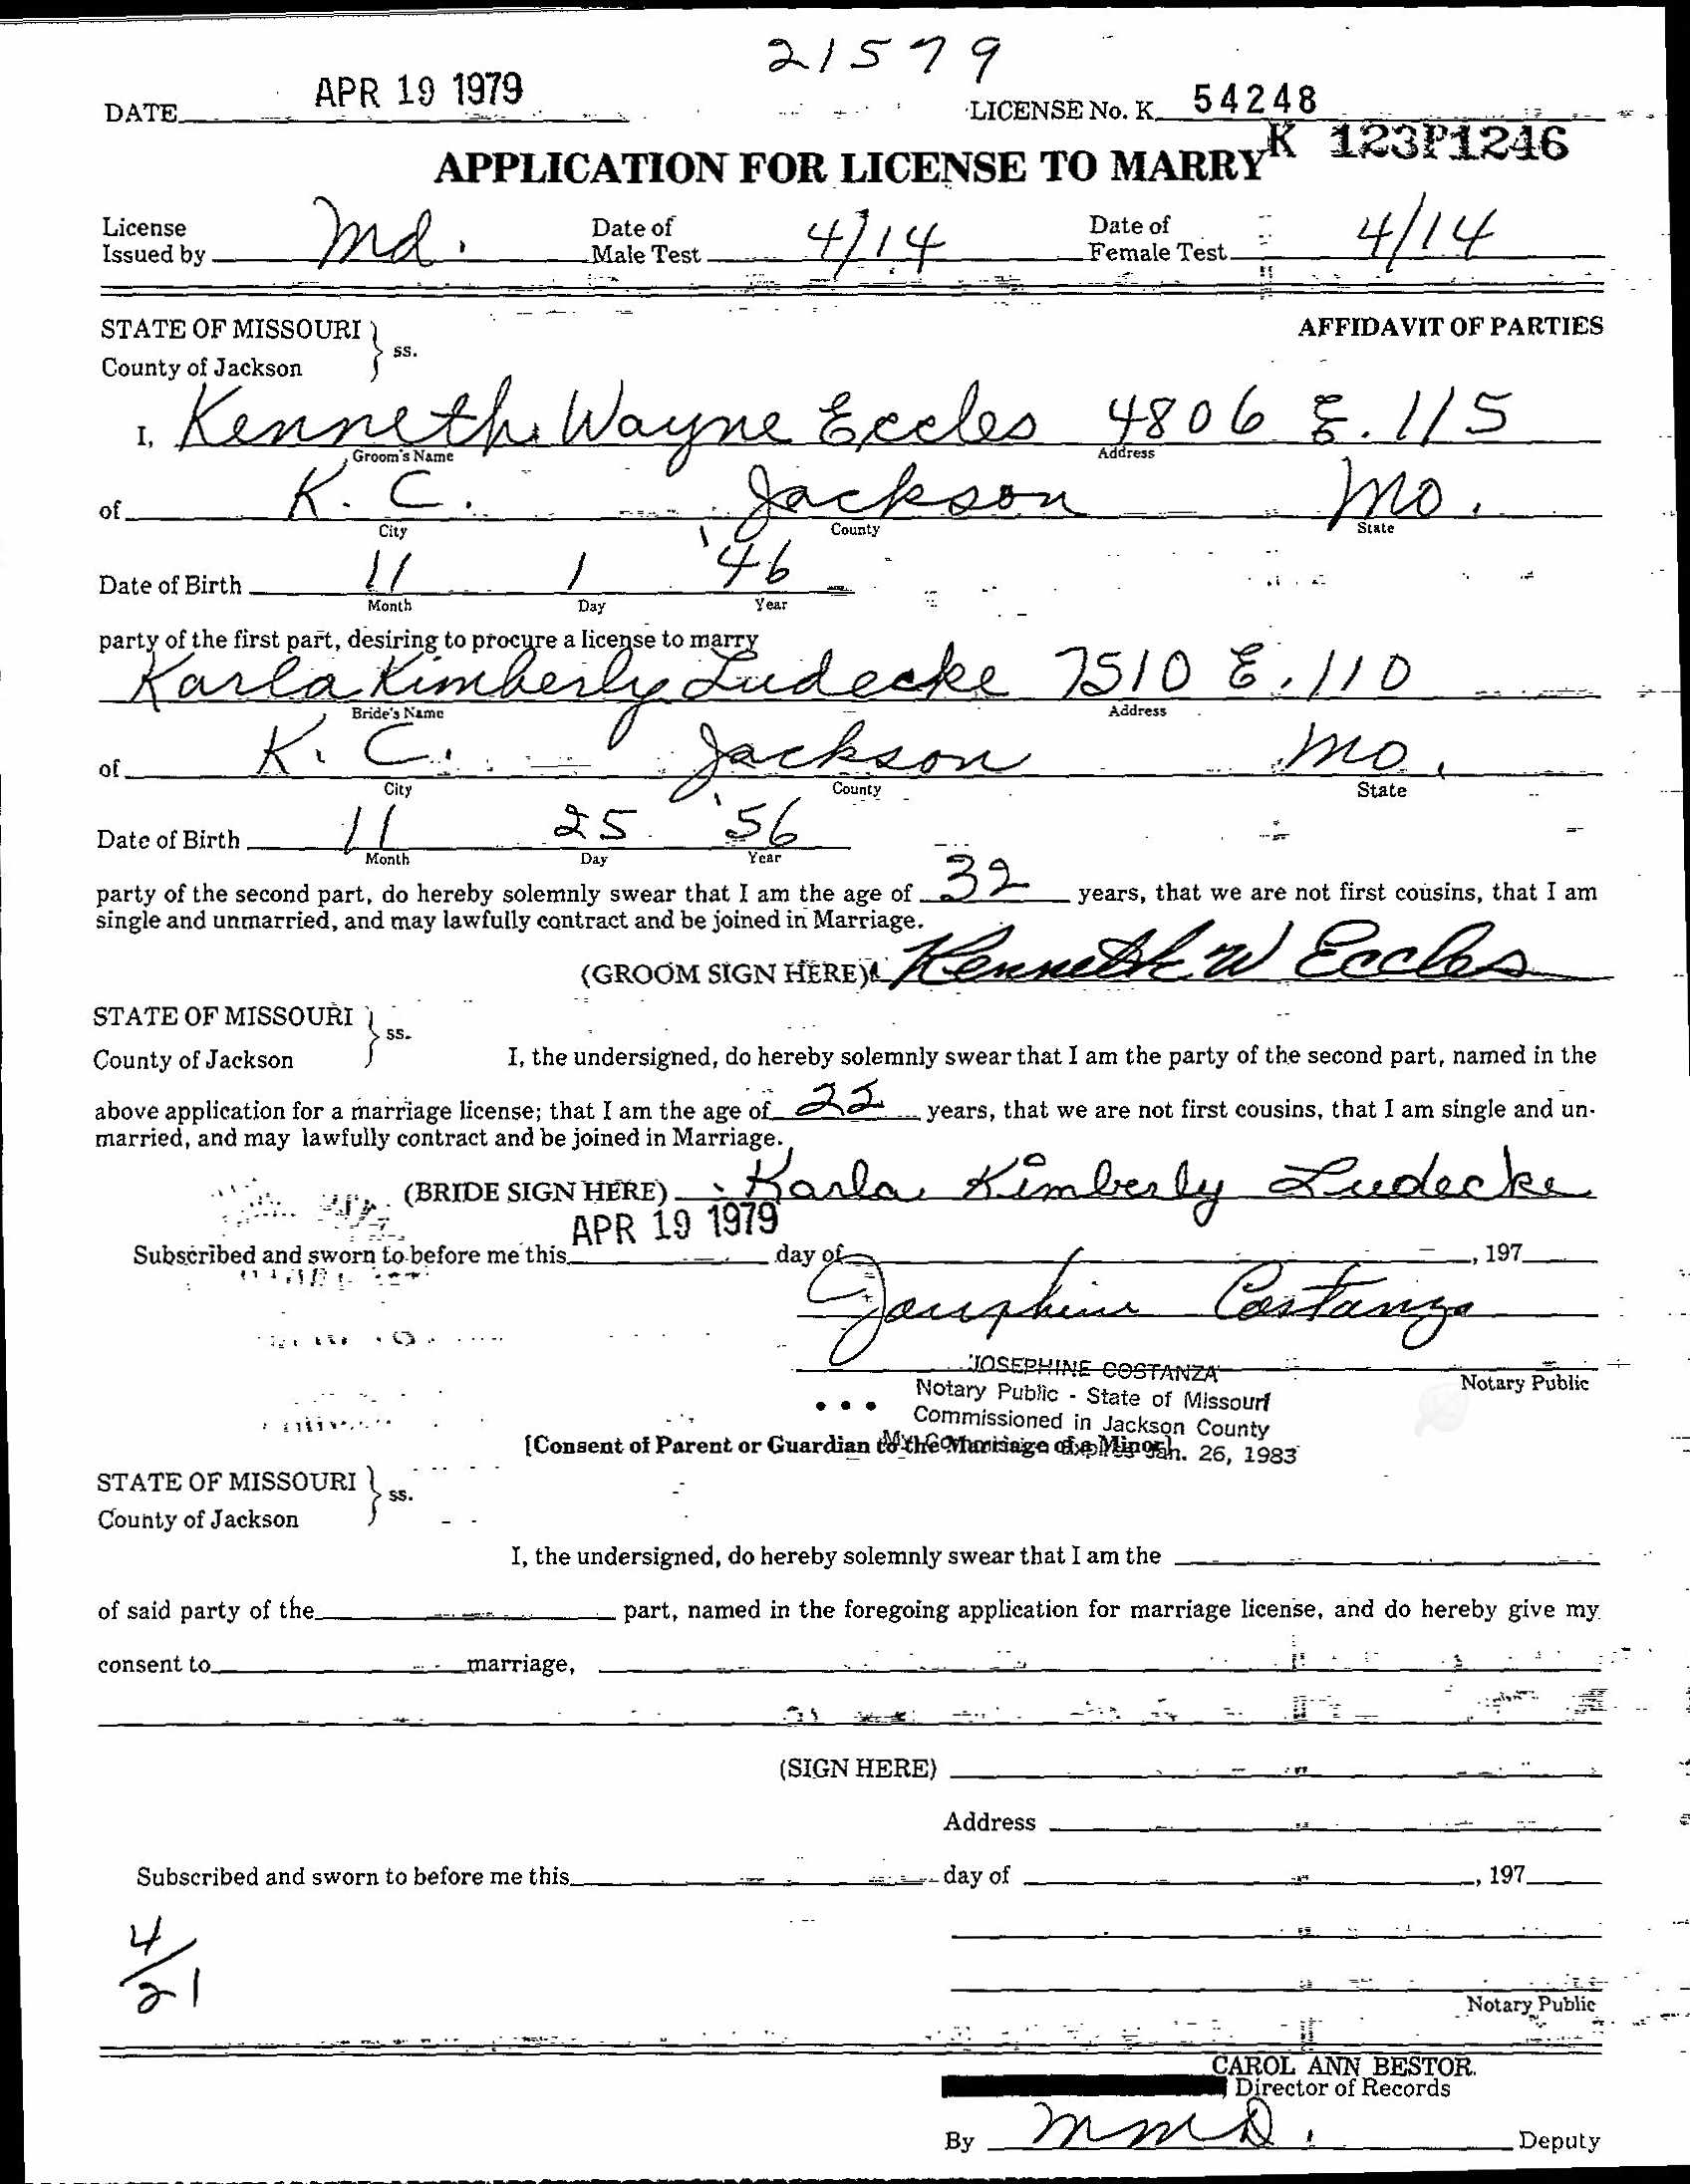 21579
DATE APR 19 1979 LICENSE No. K 54248
K 123P1246
APPLICATION FOR LICENSE TO MARRY
License Issued by md. Date of Male Test 4/14 Date of Female Test 4/14
STATE OF MISSOURI } ss. AFFIDAVIT OF PARTIES
County of Jackson
I, Kenneth Wayne Eccles 4806 E. 115
Groom's Name Address
of K. C. Jackson Mo.
City County State
Date of Birth 11 1 '46
Month Day Year
party of the first part, desiring to procure a license to marry
Karla Kimberly Ludecke 7510 E. 110
Bride's Name Address
of K. C. Jackson Mo.
City County State
Date of Birth 11 25 '56
Month Day Year
party of the second part, do hereby solemnly swear that I am the age of 32 years, that we are not first cousins, that I am
single and unmarried, and may lawfully contract and be joined in Marriage.
(GROOM SIGN HERE) Kenneth W Eccles
STATE OF MISSOURI } ss.
County of Jackson I, the undersigned, do hereby solemnly swear that I am the party of the second part, named in the
above application for a marriage license; that I am the age of 22 years, that we are not first cousins, that I am single and un-
married, and may lawfully contract and be joined in Marriage.
(BRIDE SIGN HERE) Karla Kimberly Ludecke
Subscribed and sworn to before me this APR 19 1979 day of , 197
Josephine Costanza
JOSEPHINE COSTANZA
Notary Public
Notary Public - State of Missouri
Commissioned in Jackson County
[Consent of Parent or Guardian to the Marriage of a Minor]
My Commission Expires Jan. 26, 1983
STATE OF MISSOURI } ss.
County of Jackson
I, the undersigned, do hereby solemnly swear that I am the
of said party of the part, named in the foregoing application for marriage license, and do hereby give my
consent to marriage,
(SIGN HERE)
Address
Subscribed and sworn to before me this day of , 197
4/21
Notary Public
CAROL ANN BESTOR.
Director of Records
By MMD. Deputy